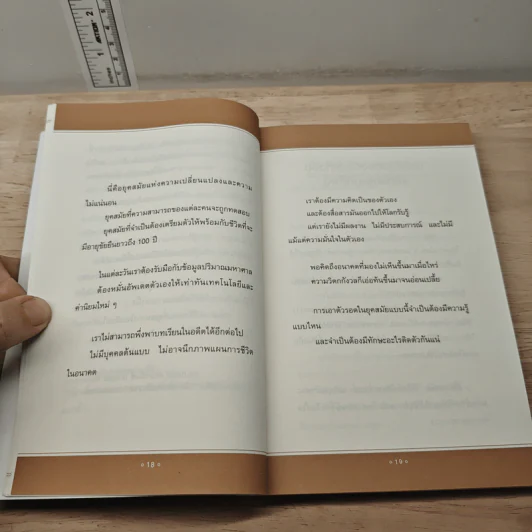 นี่คือยุคสมัยแห่งความเปลี่ยนแปลงและความ
ไม่แน่นอน
ยุคสมัยที่ความสามารถของแต่ละคนจะถูกทดสอบ
ยุคสมัยที่จำเป็นต้องเตรียมตัวให้พร้อมกับชีวิตที่จะ
มีอายุขัยยืนยาวถึง 100 ปี
ในแต่ละวันเราต้องรับมือกับข้อมูลปริมาณมหาศาล
ต้องหมั่นอัพเดตตัวเองให้เท่าทันเทคโนโลยีและ
ค่านิยมใหม่ ๆ
เราไม่สามารถพึ่งพาบทเรียนในอดีตได้อีกต่อไป
ไม่มีบุคคลต้นแบบ ไม่อาจนึกภาพแผนการชีวิต
ในอนาคต
18
เราต้องมีความคิดเป็นของตัวเอง
และต้องสื่อสารมันออกไปให้โลกรับรู้
แต่เรายังไม่มีผลงาน ไม่มีประสบการณ์ และไม่มี
แม้แต่ความมั่นใจในตัวเอง
พอคิดถึงอนาคตที่มองไม่เห็นขึ้นมาเมื่อไหร่
ความวิตกกังวลก็เอ่อท้นขึ้นมาจนอ่อนเปลี้ย
การเอาตัวรอดในยุคสมัยแบบนี้จำเป็นต้องมีความรู้
แบบไหน
และจำเป็นต้องมีทักษะอะไรติดตัวกันแน่
19
1
2